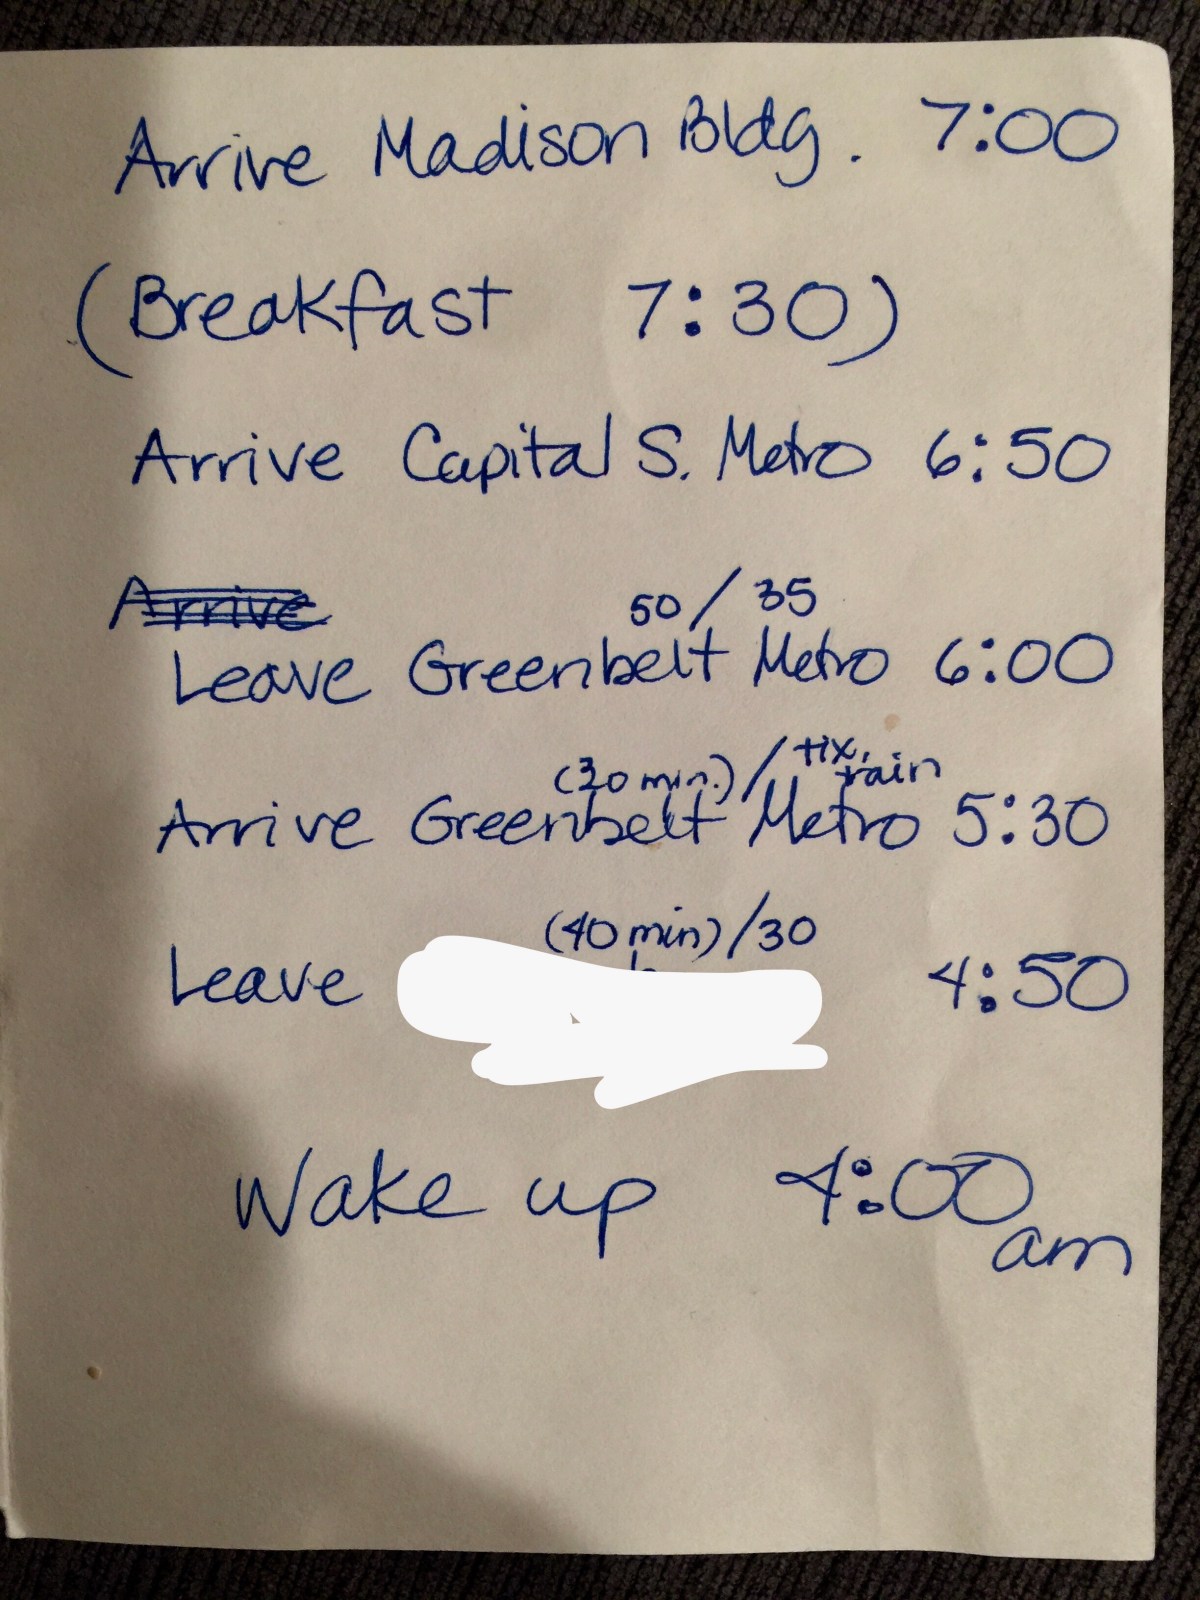 Arrive Madison Bldg. 7:00
(Breakfast 7:30)
Arrive Capital S. Metro 6:50
Arrive
50/35
Leave Greenbelt Metro 6:00
(30 min.)/tix, train
Arrive Greenbelt Metro 5:30
(40 min)/30
Leave 4:50
Wake up 4:00
am